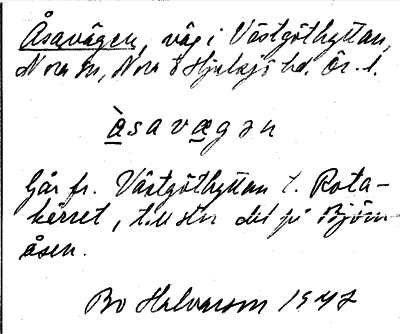 Åsavägen, väg i Västgöthyttan,
Nora sn, Nora & Hjulsjö hd. Ör. l.
åsavægən
Går fr. Västgöthyttan t. Rota-
kärret, till stor del på Björn-
åsen.
Bo Halvarson 1947